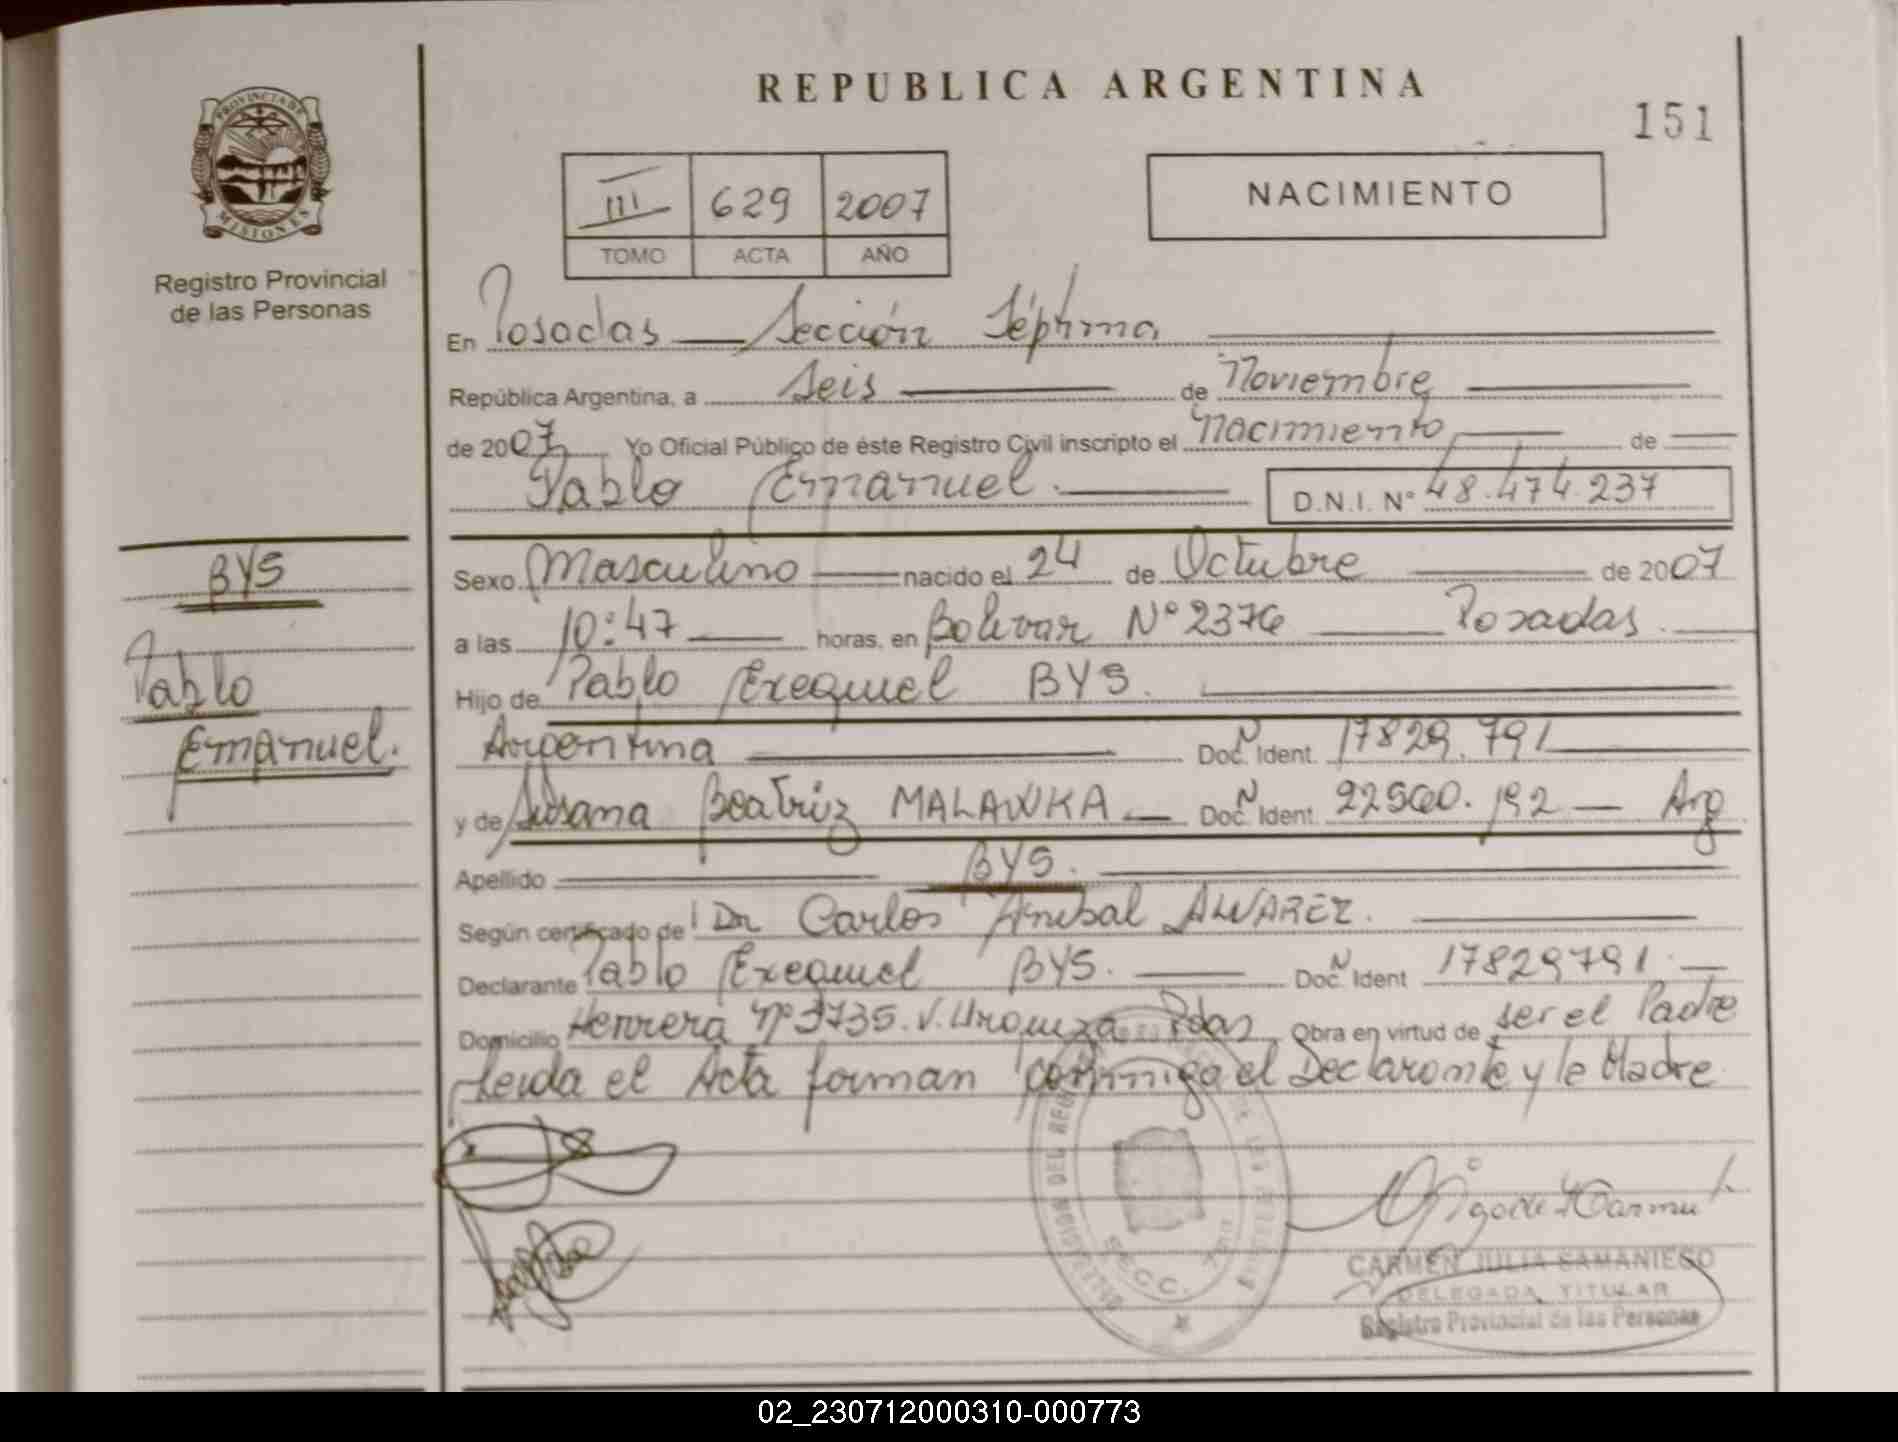 REPUBLICA ARGENTINA
151
PROVINCIA DE
MISIONES
Registro Provincial
de las Personas
III 629 2007
TOMO ACTA AÑO
NACIMIENTO
En Posadas Sección Séptima
República Argentina, a Seis de Noviembre
de 2007 Yo Oficial Público de éste Registro Civil inscripto el Nacimiento de
Pablo Emanuel. D.N.I. N° 48.474.237
BYS
Pablo
Emanuel.
Sexo Masculino nacido el 24 de Octubre de 2007
a las 10:47 horas, en Bolivar N° 2376 Posadas.
Hijo de Pablo Exequiel BYS.
Argentina Doc. N Ident. 17829.791
y de Susana Beatriz MALAWKA Doc. N Ident. 22560.192 Arg
Apellido BYS.
Según certificado de Dr Carlos Anibal ALVAREZ.
Declarante Pablo Exequiel BYS. Doc. N Ident 17829791.
Domicilio Herrera N° 3735. V. Urquiza Pdas Obra en virtud de ser el Padre
Leida el Acta forman conmigo el Declarante y la Madre
SECC. 7ma
CARMEN JULIA SAMANIEGO
DELEGADA TITULAR
Registro Provincial de las Personas
02_230712000310-000773